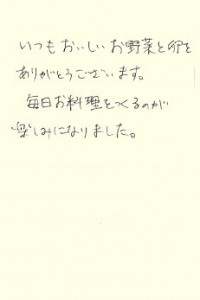 いつもおいしいお野菜と卵を
ありがとうございます。
毎日お料理をつくるのが
楽しみになりました。